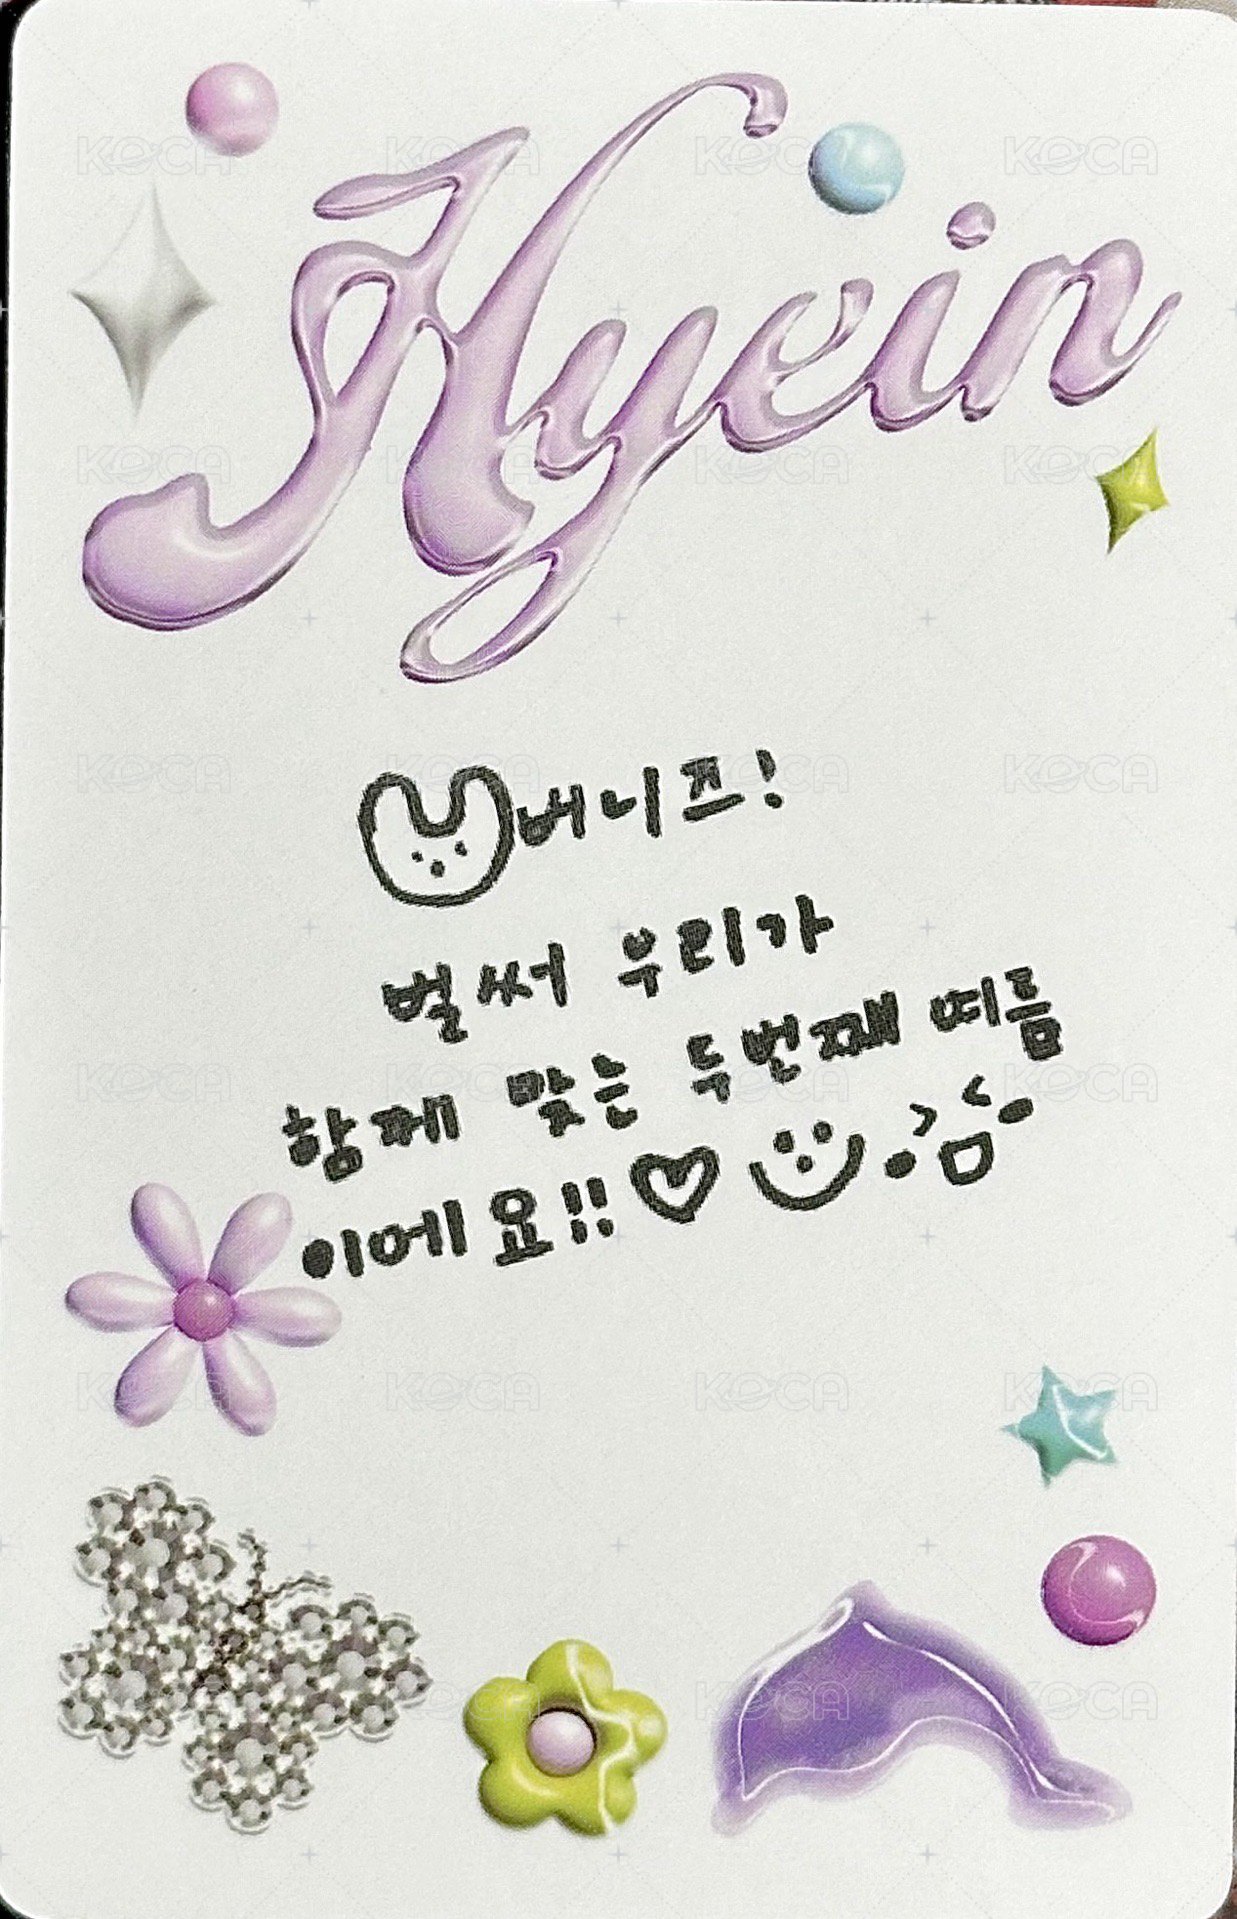 Hyein
버니즈!
벌써 우리가
함께 맞는 두번째 여름
이에요!!